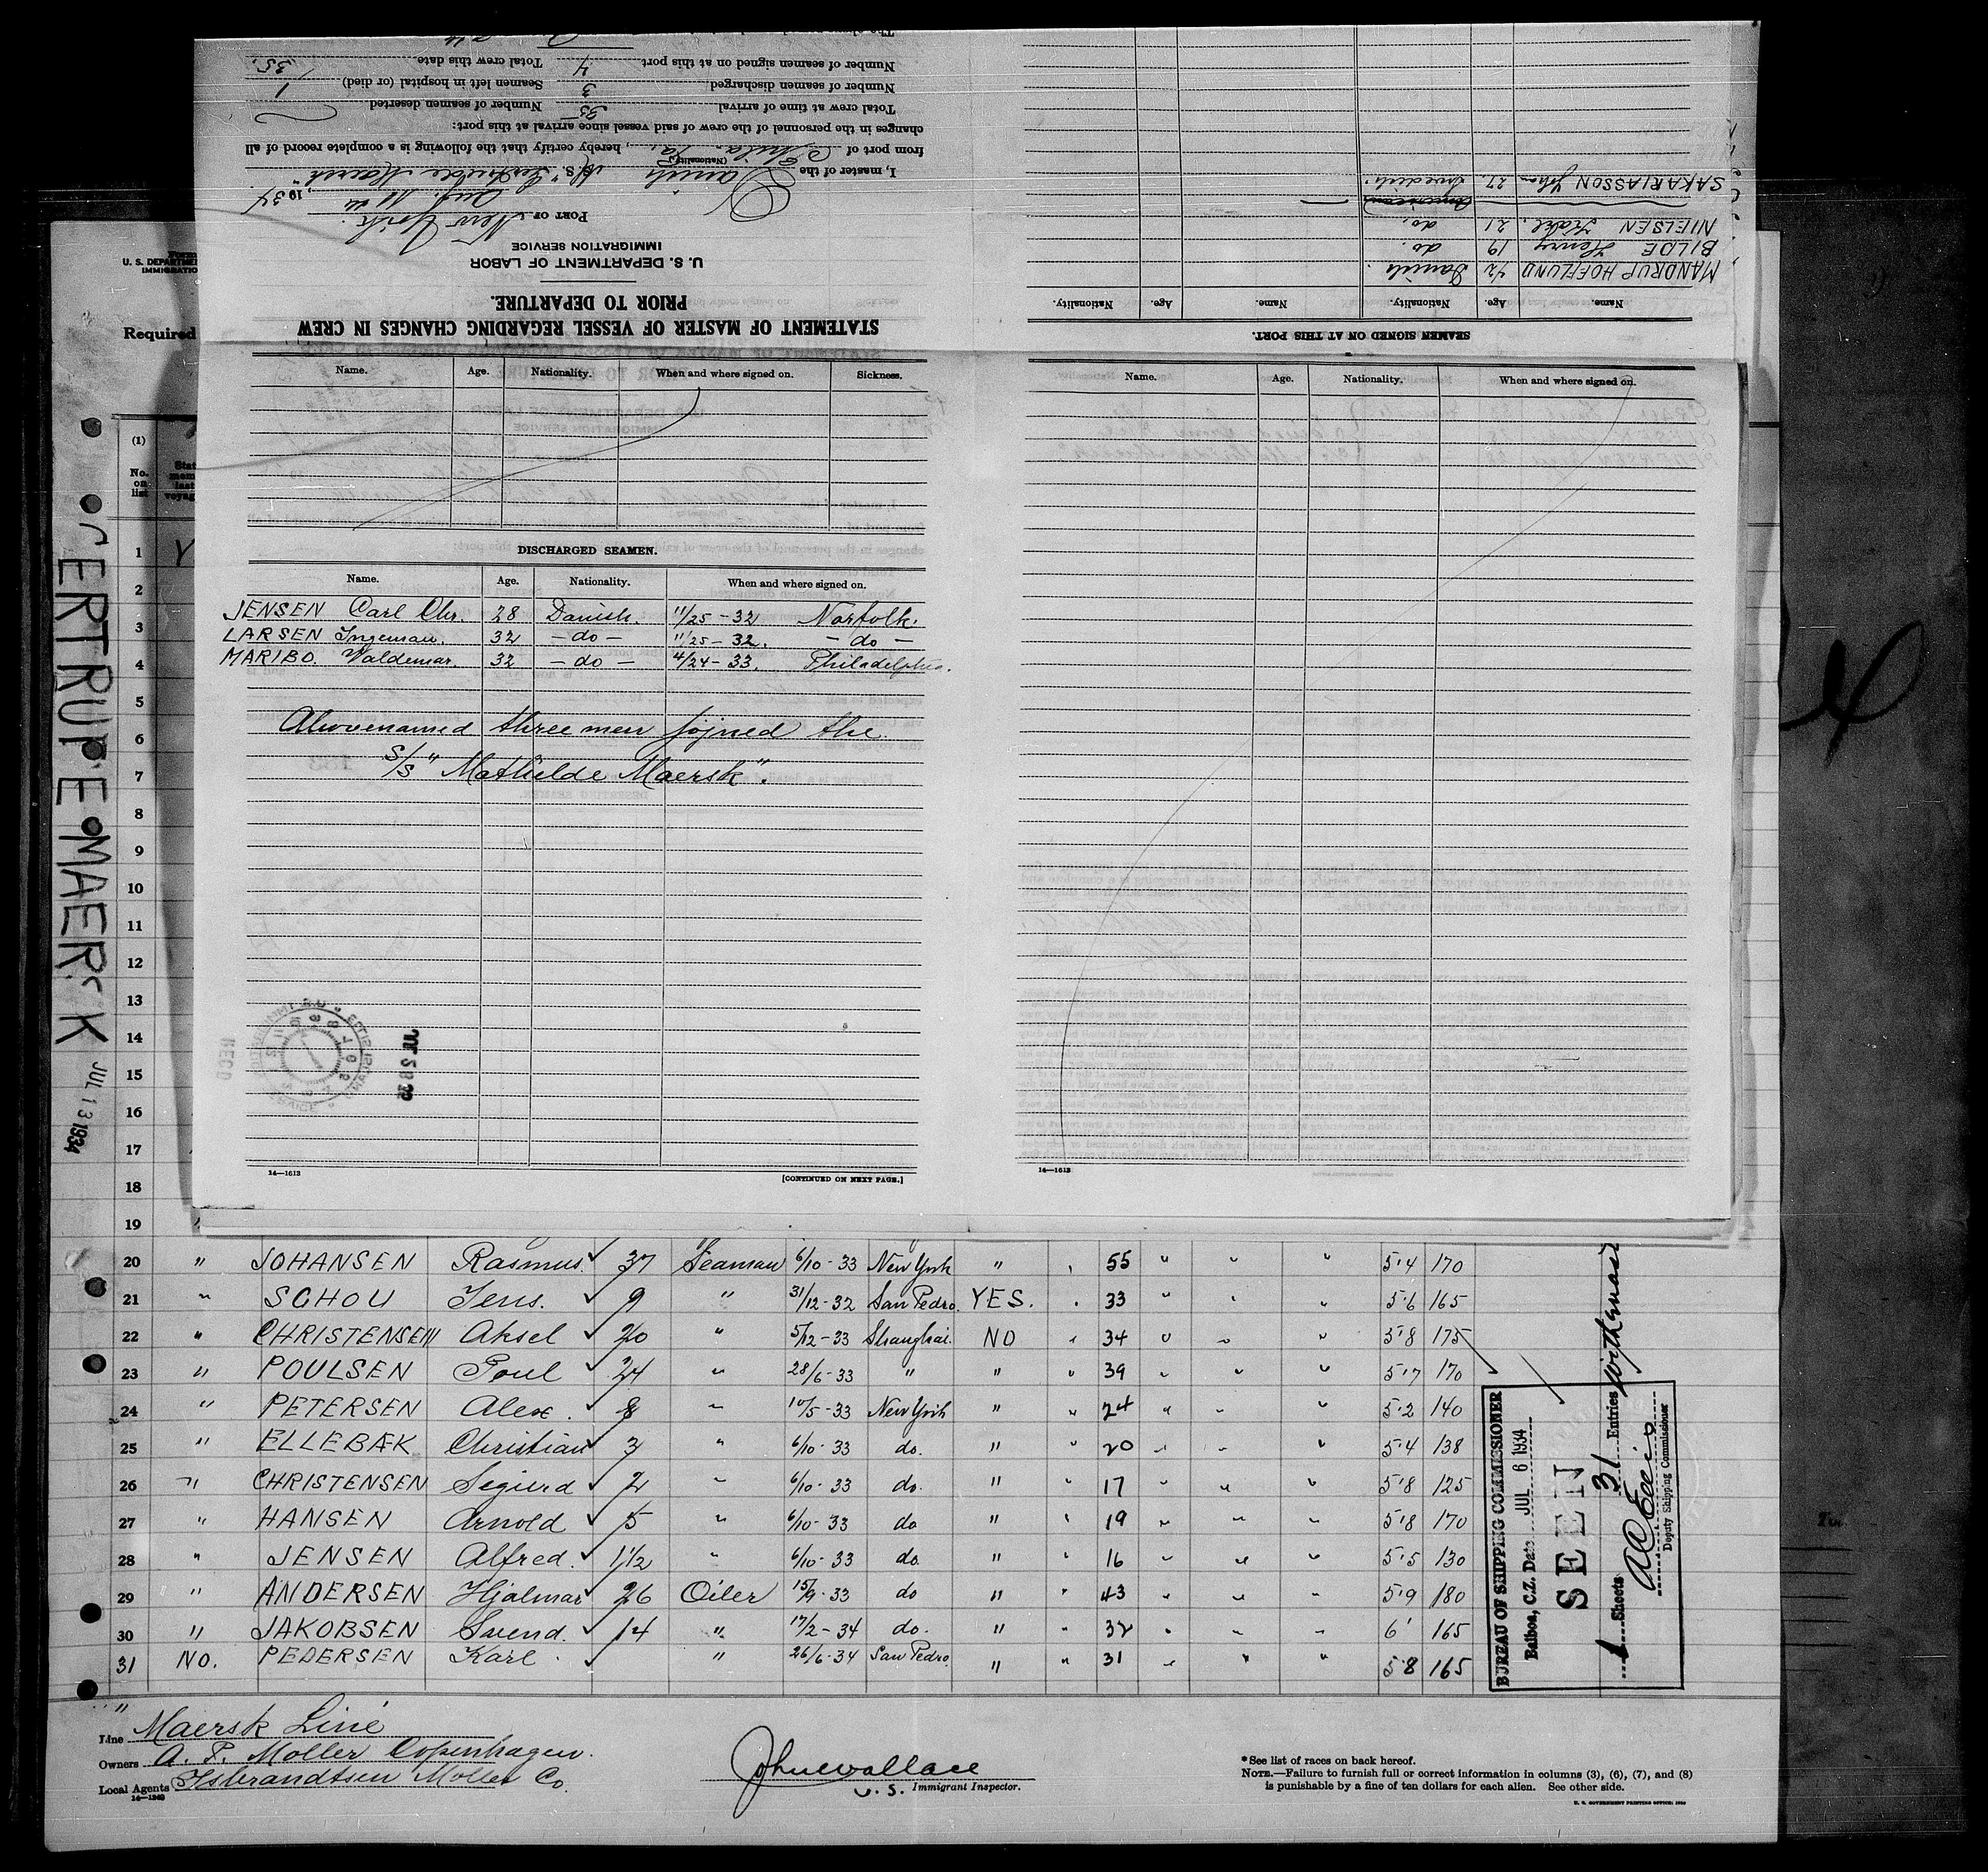 STATEMENT OF MASTER OF VESSEL REGARDING CHANGES IN CREW
PRIOR TO DEPARTURE.
U. S. DEPARTMENT OF LABOR
IMMIGRATION SERVICE
PORT OF New York
1934
I, master of the Danish (Nationality) S. S. "Gertrude Maersk"
from port of Phila. Pa., hereby certify that the following is a complete record of all
changes in the personnel of the crew of said vessel since arrival at this port:
Total crew at time of arrival 35 Number of seamen deserted
Number of seamen discharged 3 Seamen left in hospital (or died) 1
Number of seamen signed on at this port 4 Total crew this date 35.
SEAMEN SIGNED ON AT THIS PORT.
Name. Age. Nationality. Name. Age. Nationality.
MANDRUP HOFFLUND 42 Danish.
BILDE Henry 19 do.
NIELSEN 21 do.
SAKARIASSON 27. Swedish.
Form
U. S. DEPARTMENT
IMMIGRATIO
Required
(1)
No. on list
Name. Age. Nationality. When and where signed on. Sickness.
Name. Age. Nationality. When and where signed on.
DISCHARGED SEAMEN.
Name. Age. Nationality. When and where signed on.
JENSEN Carl Chr. 28 Danish. 11/25-32 Norfolk.
LARSEN Ingeman. 32 - do - 11/25-32. - do -
MARIBO. Valdemar. 32 - do - 4/24-33. Philadelphia.
Abovenamed three men joined the
S/S "Mathilde Maersk".
JUL 28 33
RECD
14—1613
[CONTINUED ON NEXT PAGE.]
14—1613
GERTRUDE MAERSK JUL 13 1934
1
2
3
4
5
6
7
8
9
10
11
12
13
14
15
16
17
18
19
20 " JOHANSEN Rasmus. 37 Seaman 6/10-33 New York " 55 " " " 5'4 170
21 " SCHOU Jens. 9 " 31/12-32 San Pedro. YES. 33 " " " 5'6 165
22 " CHRISTENSEN Aksel 20 " 5/12-33 Shanghai. NO " 34 " " 5'8 175
23 " POULSEN Poul 24 " 28/6-33 " " " 39 " " " 5'7 170
24 " PETERSEN Alex. 8 " 10/5-33 New York " " 24 " " " 5'2 140
25 " ELLEBÆK Christian 3 " 6/10-33 do. " " 20 " " " 5'4 138
26 " CHRISTENSEN Sigurd 2 " 6/10-33 do. " " 17 " " " 5'8 125
27 " HANSEN Arnold 5 " 6/10-33 do " " 19 " " " 5'8 170
28 " JENSEN Alfred. 1 1/2 " 6/10-33 do. " " 16 " " " 5'5 130
29 " ANDERSEN Hjalmar 26 Oiler 15/9-33 do " " 43 " " " 5'9 180
30 " JAKOBSEN Svend. 14 " 17/2-34 do. " " 32 " " " 6' 165
31 NO. PEDERSEN Karl. " 26/6-34 San Pedro. " " 31 " " " 5'8 165
BUREAU OF SHIPPING COMMISSIONER
Balboa, C.Z. Date JUL 6 1934
SEEN
1 Sheets 31 Entries
Deputy Shipping Commissioner
Line Maersk Line
Owners A. P. Moller Copenhagen.
Local Agents Isbrandtsen Moller Co.
14—1240
John Wallace
U. S. Immigrant Inspector.
*See list of races on back hereof.
NOTE.—Failure to furnish full or correct information in columns (3), (6), (7), and (8)
is punishable by a fine of ten dollars for each alien. See other side.